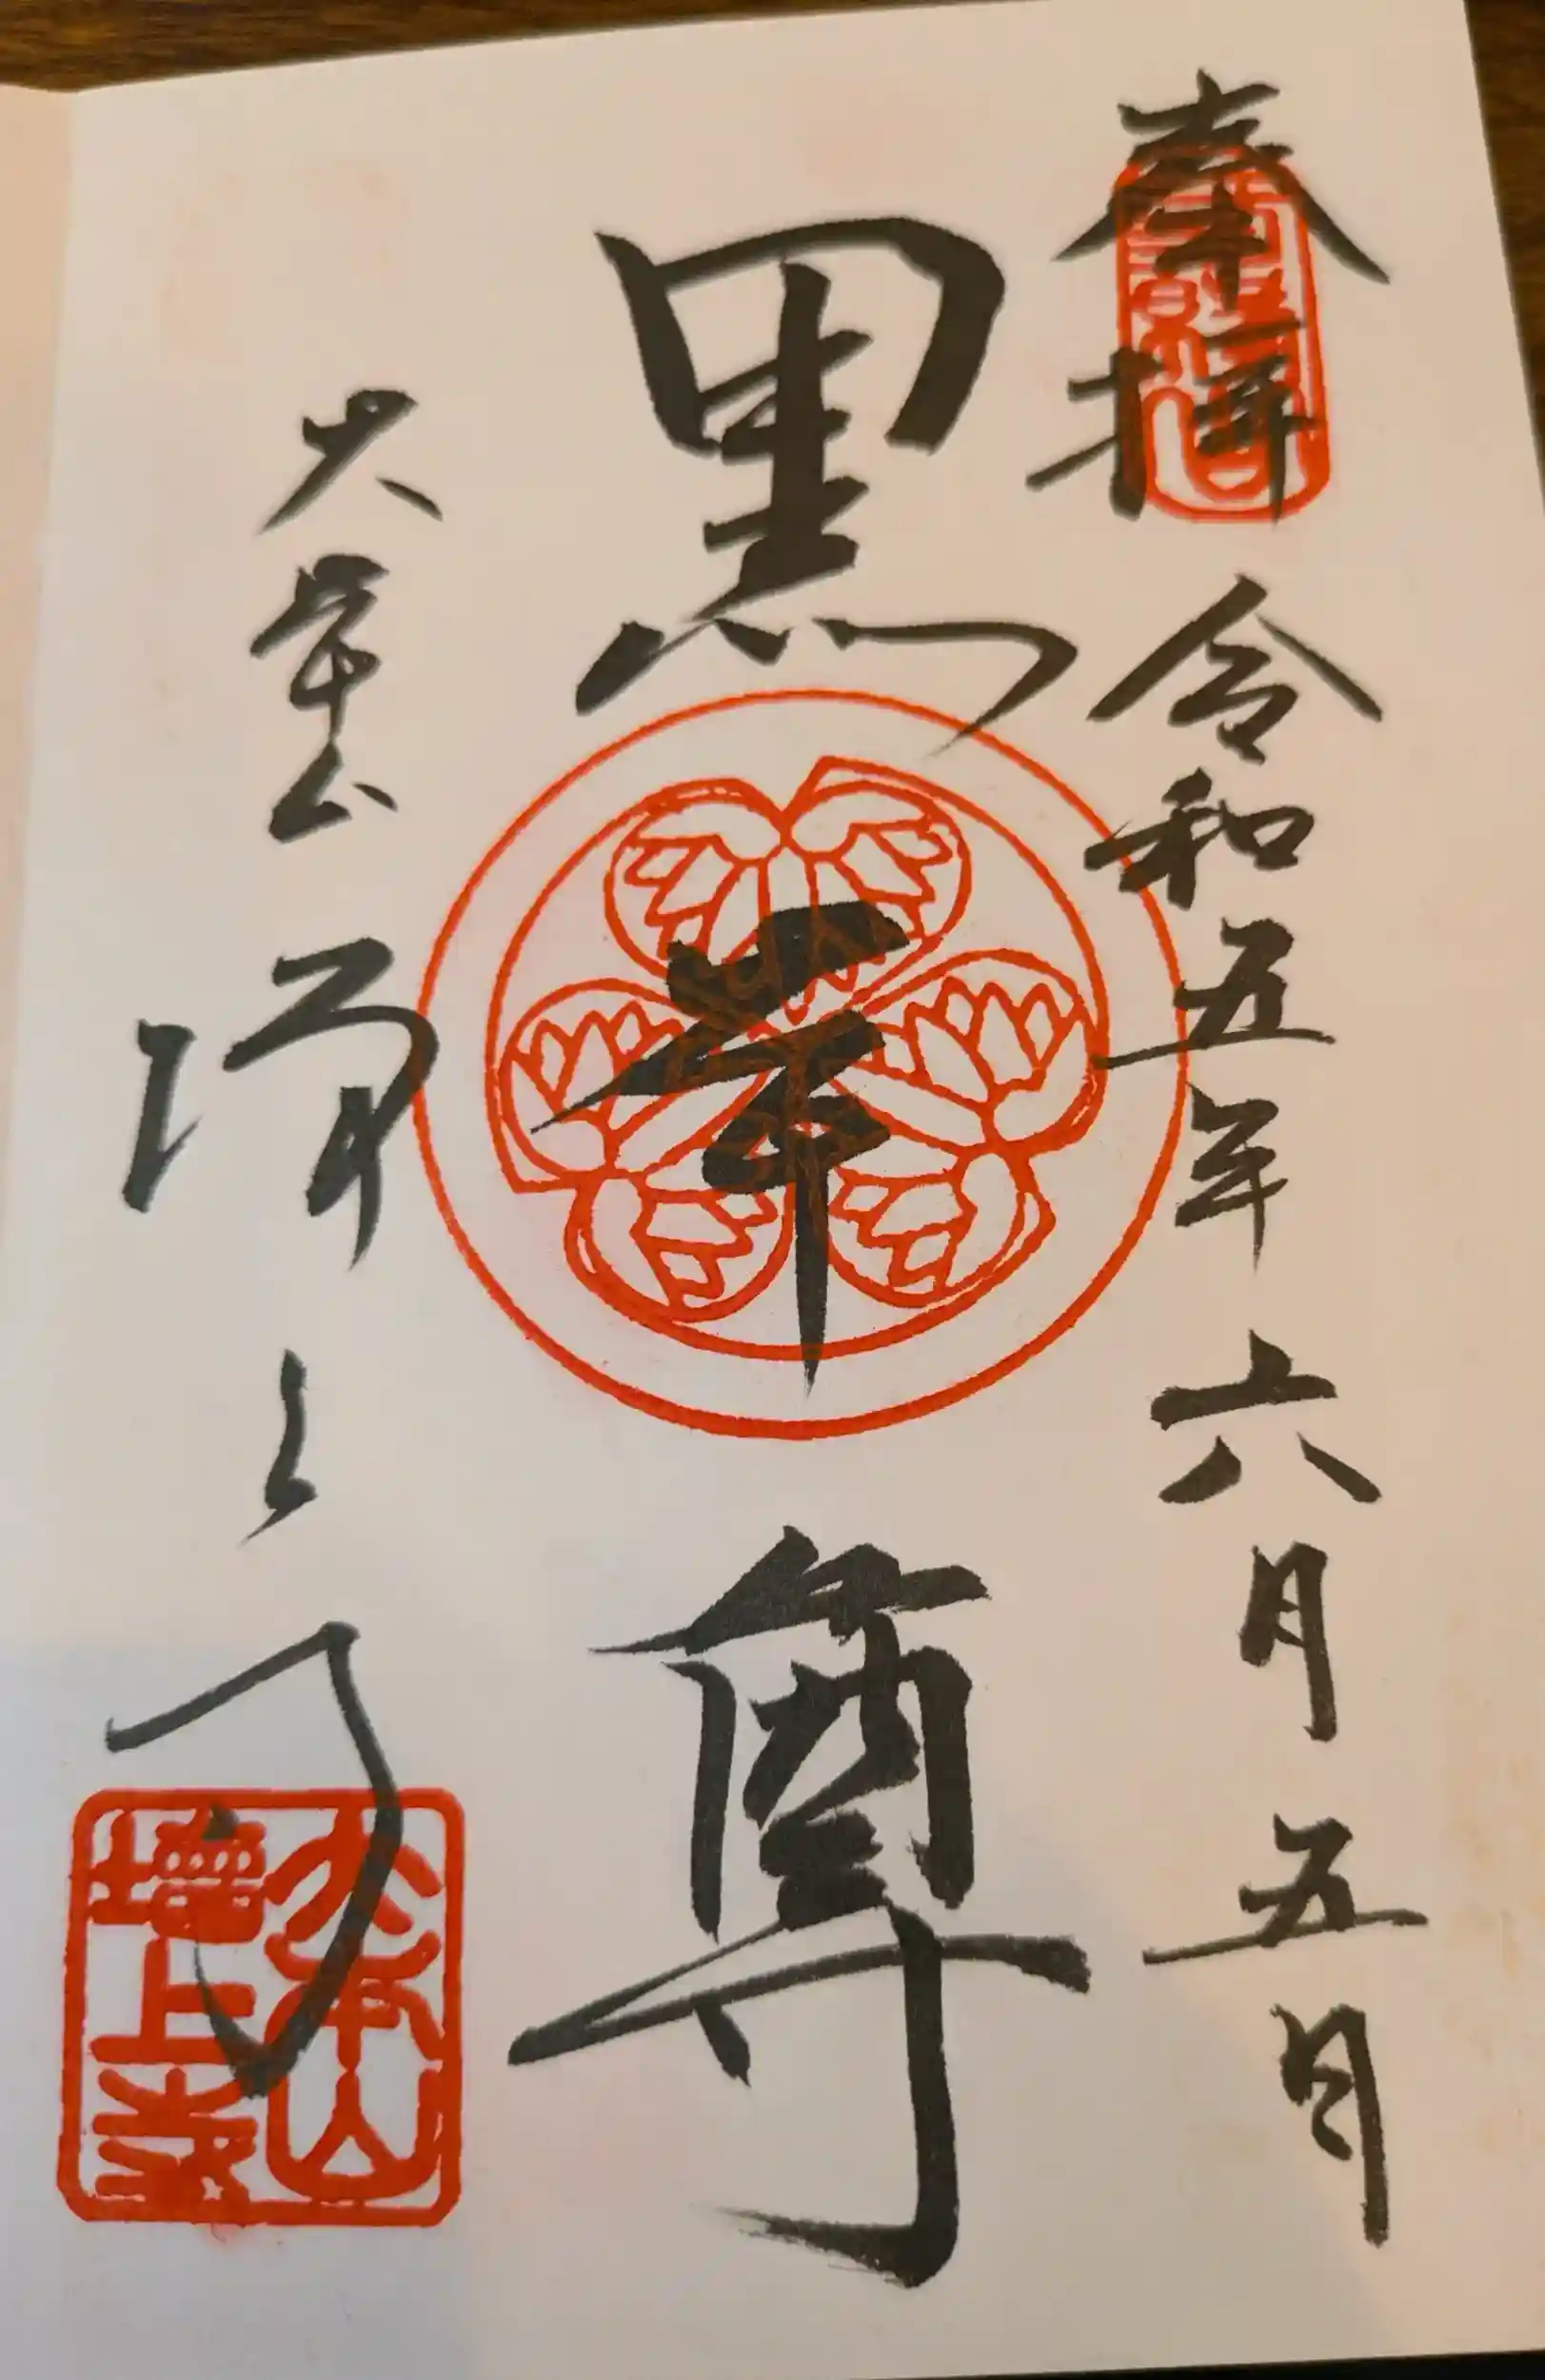 奉拝
令和五年六月五日
黒本尊
大本山増上寺
大本山
増上寺